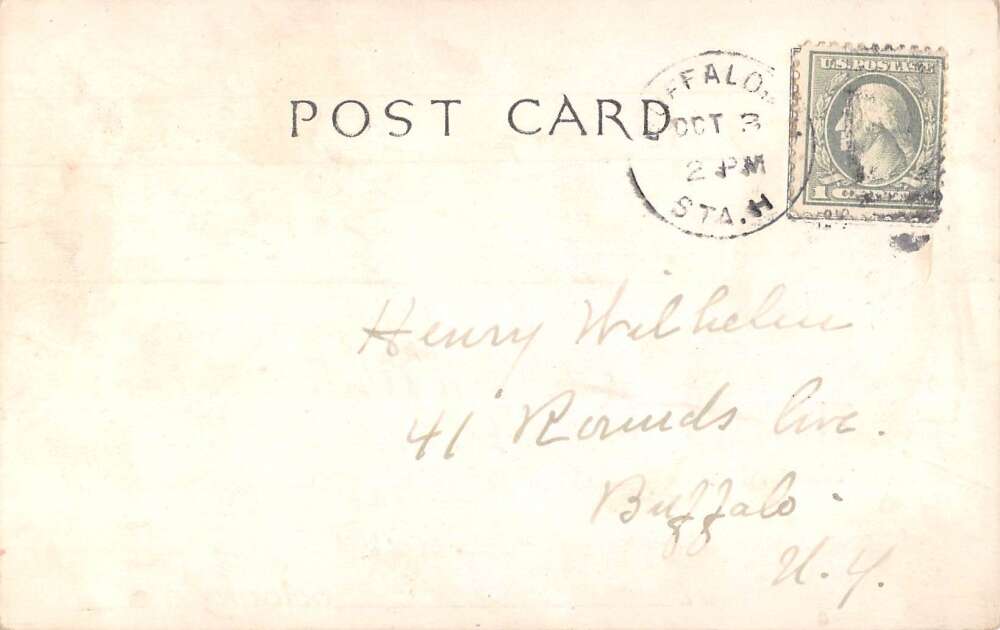 POST CARD
BUFFALO
OCT 3
2 PM
STA. H
U.S. POSTAGE
1
Henry Wilhelm
41 Rounds Ave.
Buffalo
N.Y.